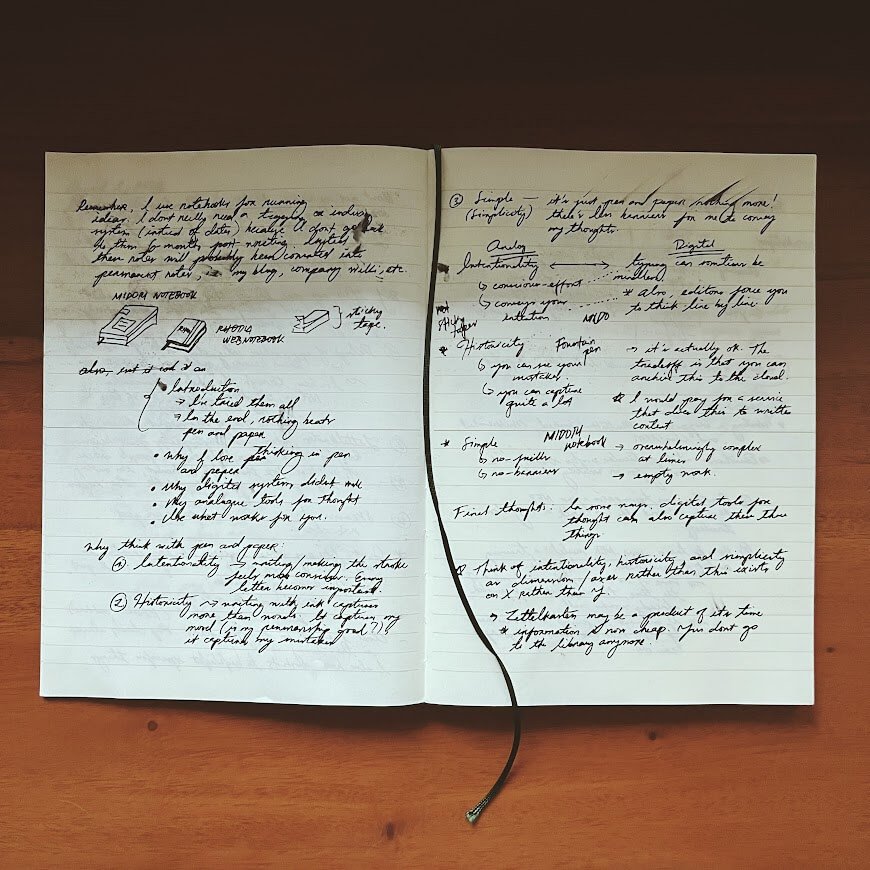 Remember, I use notebooks for running
ideas. I dont really need a tagging or
system (instead of dates) because I dont
them 6 months post-writing.
these notes will probably been converted into
permanent notes, in my blog, company wiki, etc.
MIDORI NOTEBOOK
RHODIA
WEBNOTEBOOK
sticky
tape.
also,
Introduction
→ I've tried them all
→ In the end, nothing beats
pen and paper
• Why I love thinking in pen
and paper
• Why digital systems didnt
• Why analogue tools for thought
• Use what works for you.
Why think with pen and paper:
① Intentionality → writing/making the stroke
feels more. Every
letter becomes important.
② Historicity → writing with ink captures
more than words. It captures my
mood (is my penmanship good?)
it captures my mistakes
③ Simple — it's just pen and paper nothing more!
(Simplicity) there's less barriers for me to convey
my thoughts.
Analog
Digital
Intentionality ↔ typing can sometimes be
mindless
↳ conscious effort
* also, editors force you
to think line by line.
↳ conveys your
intention
* Historicity
Fountain
pen
→ it's actually ok. The
tradeoff is that you can
archive this to the cloud.
↳ you can see your
mistakes
↳ you can capture
quite a lot
* I would pay for a service
that does this to written
content
* Simple
MIDORI
notebook
→ overwhelmingly complex
at times
↳ no-frills
↳ no-barriers
→ empty work.
Final thoughts: In some ways, digital tools for
thought can also capture these three
things.
Think of intentionality, historicity, and simplicity
as dimension / axes rather than this exists
on X rather than Y.
→ Zettelkasten may be a product of its time
* information is now cheap. You dont go
to the library anymore.